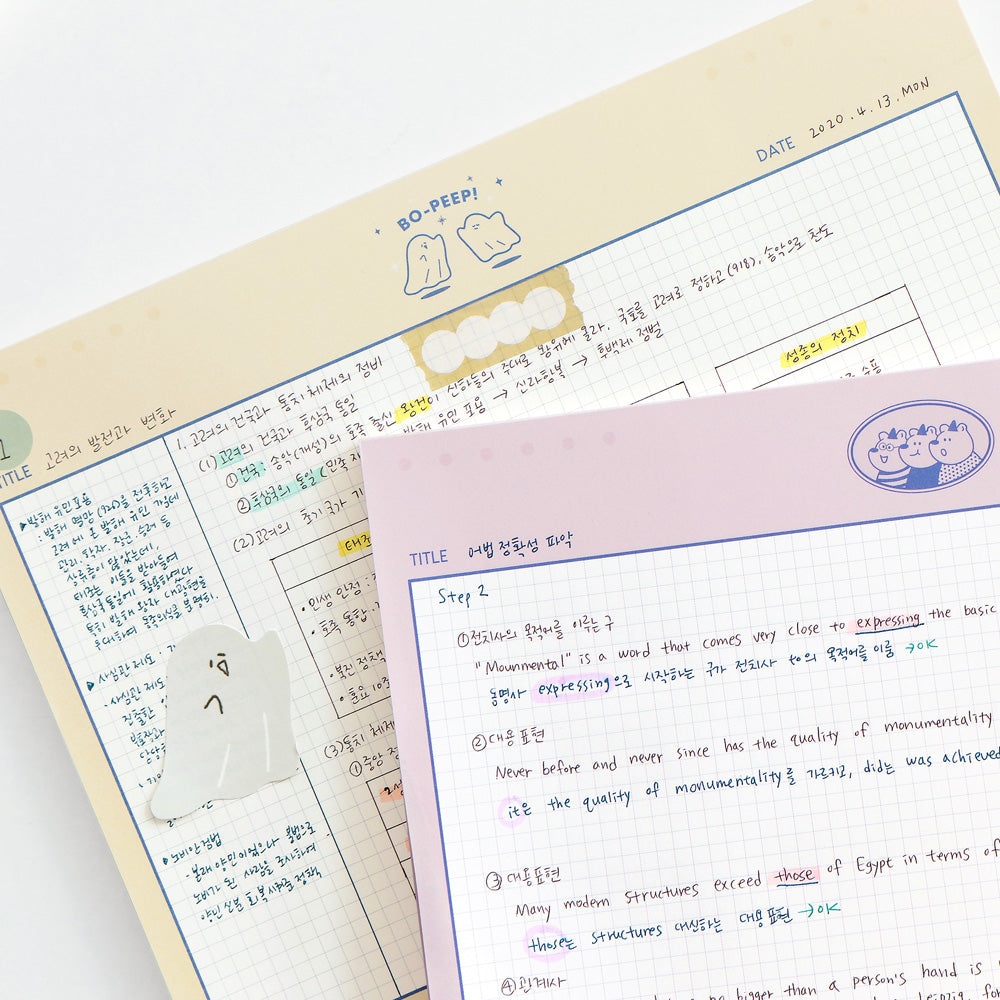 BO-PEEP!
DATE 2020.4.13.MON
1
TITLE 고려의 발전과 변화
▶발해 유민 포용
: 발해 멸망(926)을 전후하고
고려에 온 발해 유민 가운데
관리, 학자, 장군, 승려 등
상류층이 많았는데,
태조는 이들을 받아들여
후삼국 통일에 활용하였다
특히 발해 왕자 대광현을
우대하여 동족의식을 분명히.
▶사심관 제도 :
· 사심관 제도
▶노비안검법
: 본래 양인이었으나 불법으로
노비가 된 사람을 조사하여
양인 신분 회복시켜준 정책
1. 고려의 건국과 통치 체제의 정비
(1) 고려의 건국과 후삼국 통일
①건국: 송악(개성)의 호족 출신 왕건이 신하들의 추대로 왕위에 올라. 국호를 고려로 정하고(918), 송악으로 천도
②후삼국의 통일(민족 재 발해 유민 포용 → 신라항복 → 후백제 정벌
(2) 고려의 초기 국가 기
태조
성종의 정치
수용
· 민생 안정 :
· 호족 통합 :
· 북진 정책
· 훈요 10조
(3) 통치 체제
①중앙 정
2성
TITLE 어법 정확성 파악
Step 2
①전치사의 목적어를 이루는 구
"Mounmental" is a word that comes very close to expressing the basic
동명사 expressing으로 시작하는 구가 전치사 to의 목적어를 이룸 →OK
②대용표현
Never before and never since has the quality of monumentality
it은 the quality of monumentality를 가르키고, did는 was achieved
③대용표현
Many modern structures exceed those of Egypt in terms of
those는 structures 대신하는 대용표현 →OK
④관계사
no bigger than a person's hand is